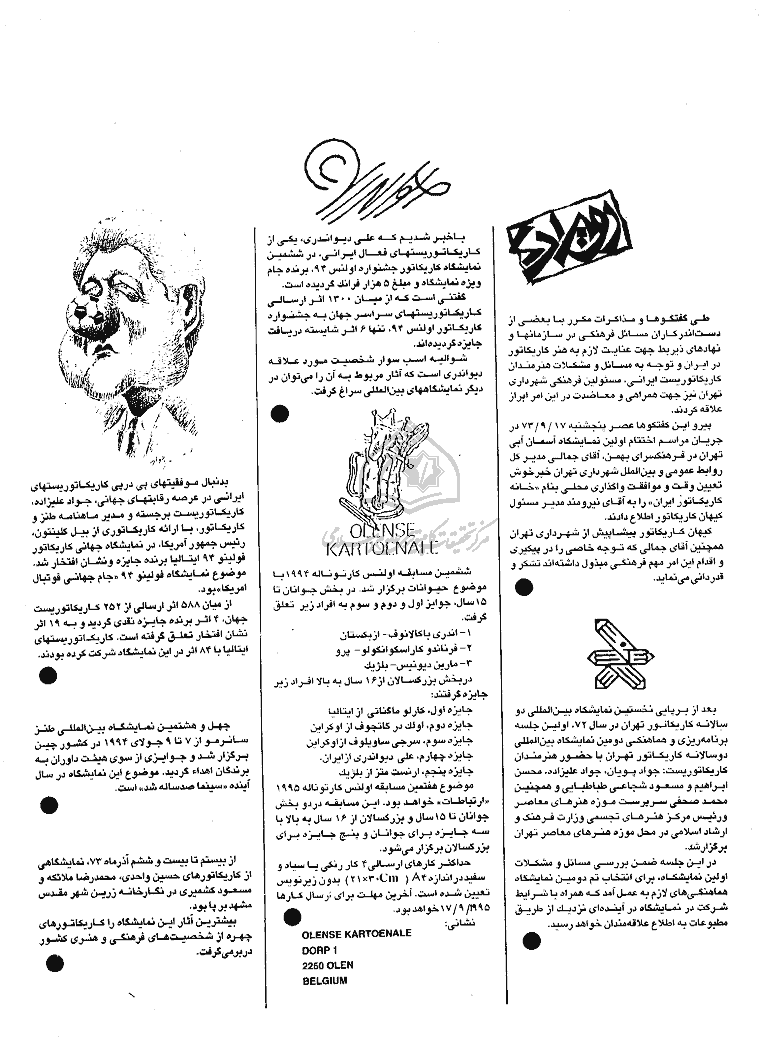 رویداد
طی گفتگوها و مذاکرات مکرر با بعضی از
دست‌اندرکاران مسائل فرهنگی در سازمانها و
نهادهای ذیربط جهت عنایت لازم به هنر کاریکاتور
در ایران و توجه به مسائل و مشکلات هنرمندان
کاریکاتوریست ایرانی، مسئولین فرهنگی شهرداری
تهران نیز جهت همراهی و معاضدت در این امر ابراز
علاقه کردند.
پیرو این گفتگوها عصر پنجشنبه ۷۳/۹/۱۷ در
جریان مراسم اختتام اولین نمایشگاه آسمان آبی
تهران در فرهنگسرای بهمن، آقای جمالی مدیر کل
روابط عمومی و بین‌الملل شهرداری تهران خبر خوش
تعیین وقت و موافقت واگذاری محلی بنام «خانه
کاریکاتور ایران» را به آقای نیرومند مدیر مسئول
کیهان کاریکاتور اطلاع دادند.
کیهان کاریکاتور پیشاپیش از شهرداری تهران
همچنین آقای جمالی که توجه خاصی را در پیگیری
و اقدام این امر مهم فرهنگی مبذول داشته‌اند تشکر و
قدردانی می‌نماید.
بعد از برپایی نخستین نمایشگاه بین‌المللی دو
سالانه کاریکاتور تهران در سال ۷۲، اولین جلسه
برنامه‌ریزی و هماهنگی دومین نمایشگاه بین‌المللی
دوسالانه کاریکاتور تهران با حضور هنرمندان
کاریکاتوریست: جواد پویان، جواد علیزاده، محسن
ابراهیم و مسعود شجاعی طباطبایی و همچنین
محمد صحفی سرپرست موزه هنرهای معاصر
ورئیس مرکز هنرهای تجسمی وزارت فرهنگ و
ارشاد اسلامی در محل موزه هنرهای معاصر تهران
برگزار شد.
در این جلسه ضمن بررسی مسائل و مشکلات
اولین نمایشگاه، برای انتخاب تم دومین نمایشگاه
هماهنگی‌های لازم به عمل آمد که همراه با شرایط
شرکت در نمایشگاه در آینده‌ای نزدیك از طریق
مطبوعات به اطلاع علاقه‌مندان خواهد رسید.
باخبر شدیم که علی دیواندری، یکی از
کاریکاتوریستهای فعال ایرانی، در ششمین
نمایشگاه کاریکاتور جشنواره اولنس ۹۴، برنده جام
ویژه نمایشگاه و مبلغ ۵ هزار فرانك گردیده است.
گفتنی است که از میان ۱۳۰۰ اثر ارسالی
کاریکاتوریستهای سراسر جهان به جشنواره
کاریکاتور اولنس ۹۴، تنها ۶ اثر شایسته دریافت
جایزه گردیده‌اند.
شوالیه اسب سوار شخصیت مورد علاقه
دیواندری است که آثار مربوط به آن را می‌توان در
دیگر نمایشگاههای بین‌المللی سراغ گرفت.
OLENSE
KARTOENALE
ششمین مسابقه اولنس کارتوناله ۱۹۹۴ با
موضوع حیوانات برگزار شد. در بخش جوانان تا
۱۵ سال، جوایز اول و دوم و سوم به افراد زیر تعلق
گرفت.
۱- اندری باکالانوف- ازبکستان
۲- فرناندو کاراسکوانکولو- پرو
۳- مارین دیونیس- بلژیك
دربخش بزرگسالان از ۱۶ سال به بالا افراد زیر
جایزه گرفتند:
جایزه اول، کارلو ماگناتی از ایتالیا
جایزه دوم، اولك در گانچوف از اوکراین
جایزه سوم، سرجی ساویلوف از اوکراین
جایزه چهارم، علی دیواندری از ایران.
جایزه پنجم، ارنست متز از بلژیك
موضوع هفتمین مسابقه اولنس کارتوناله ۱۹۹۵
«ارتباطات» خواهد بود. این مسابقه در دو بخش
جوانان تا ۱۵ سال و بزرگسالان از ۱۶ سال به بالا با
سه جایزه برای جوانان و پنج جایزه برای
بزرگسالان برگزار می‌شود.
حداکثر کارهای ارسالی ۴ کار رنگی یا سیاه و
سفید در اندازه A4 ( ۲۱×۳۰ Cm ) بدون زیرنویس
تعیین شده است. آخرین مهلت برای ارسال کارها
۱۷/۹/۱۹۹۵ خواهد بود.
نشانی:
OLENSE KARTOENALE
DORP 1
2250 OLEN
BELGIUM
بدنبال موفقیتهای پی درپی کاریکاتوریستهای
ایرانی در عرصه رقابتهای جهانی، جواد علیزاده،
کاریکاتوریست برجسته و مدیر ماهنامه طنز و
کاریکاتور، با ارائه کاریکاتوری از بیل کلینتون،
رئیس جمهور آمریکا، در نمایشگاه جهانی کاریکاتور
فولینو ۹۴ ایتالیا برنده جایزه ونشان افتخار شد.
موضوع نمایشگاه فولینو ۹۴ «جام جهانی فوتبال
امریکا» بود.
از میان ۵۸۸ اثر ارسالی از ۲۵۲ کاریکاتوریست
جهان، ۴ اثر برنده جایزه نقدی گردید و به ۱۹ اثر
نشان افتخار تعلق گرفته است. کاریکاتوریستهای
ایتالیا با ۸۴ اثر در این نمایشگاه شرکت کرده بودند.
چهل و هشتمین نمایشگاه بین‌المللی طنز
سانرمو از ۷ تا ۹ جولای ۱۹۹۴ در کشور چین
برگزار شد و جوایزی از سوی هیئت داوران به
برندگان اهداء گردید. موضوع این نمایشگاه در سال
آینده «سینما صدساله شد» است.
از بیستم تا بیست و ششم آذرماه ۷۳، نمایشگاهی
از کاریکاتورهای حسین واحدی، محمدرضا ملائکه و
مسعود کشمیری در نگارخانه زرین شهر مقدس
مشهد برپا بود.
بیشترین آثار این نمایشگاه را کاریکاتورهای
چهره از شخصیت‌های فرهنگی و هنری کشور
دربر می‌گرفت.